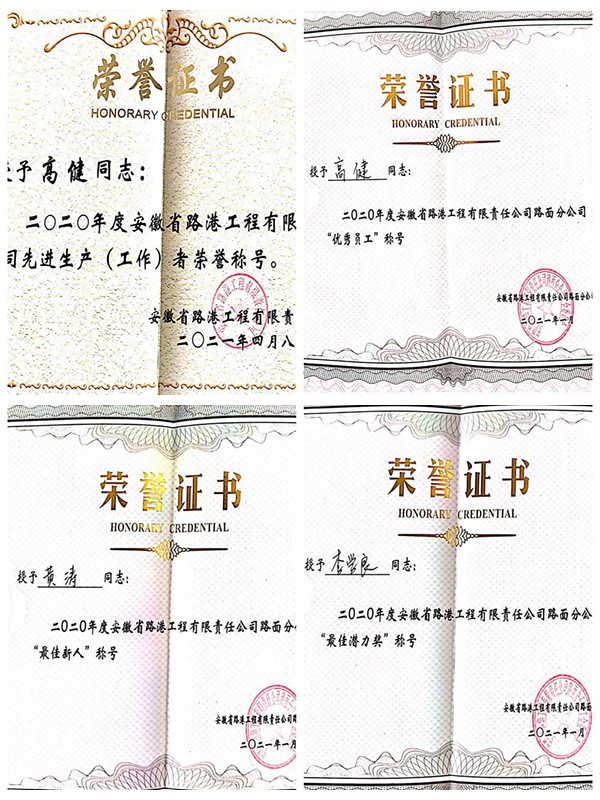 荣誉证书
HONORARY CREDENTIAL
予高健同志：
二〇二〇年度安徽省路港工程有限
司先进生产（工作）者荣誉称号。
安徽省路港工程有限责
二〇二一年四月八
荣誉证书
HONORARY CREDENTIAL
授予高健同志：
二〇二〇年度安徽省路港工程有限责任公司路面分公司
“优秀员工”称号
安徽省路港工程有限责任公司路面分公
二〇二一年一月
荣誉证书
HONORARY CREDENTIAL
授予黄涛同志：
二〇二〇年度安徽省路港工程有限责任公司路面分公
“最佳新人”称号
安徽省路港工程有限责任公司路
二〇二一年一月
荣誉证书
HONORARY CREDENTIAL
授予李学良同志：
二〇二〇年度安徽省路港工程有限责任公司路面分公
“最佳潜力奖”称号
安徽省路港工程有限责任公司路面
二〇二一年一月